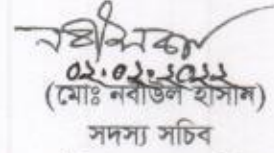 ০২.০২.২০২২
(মোঃ নবীউল হাসান)
সদস্য সচিব